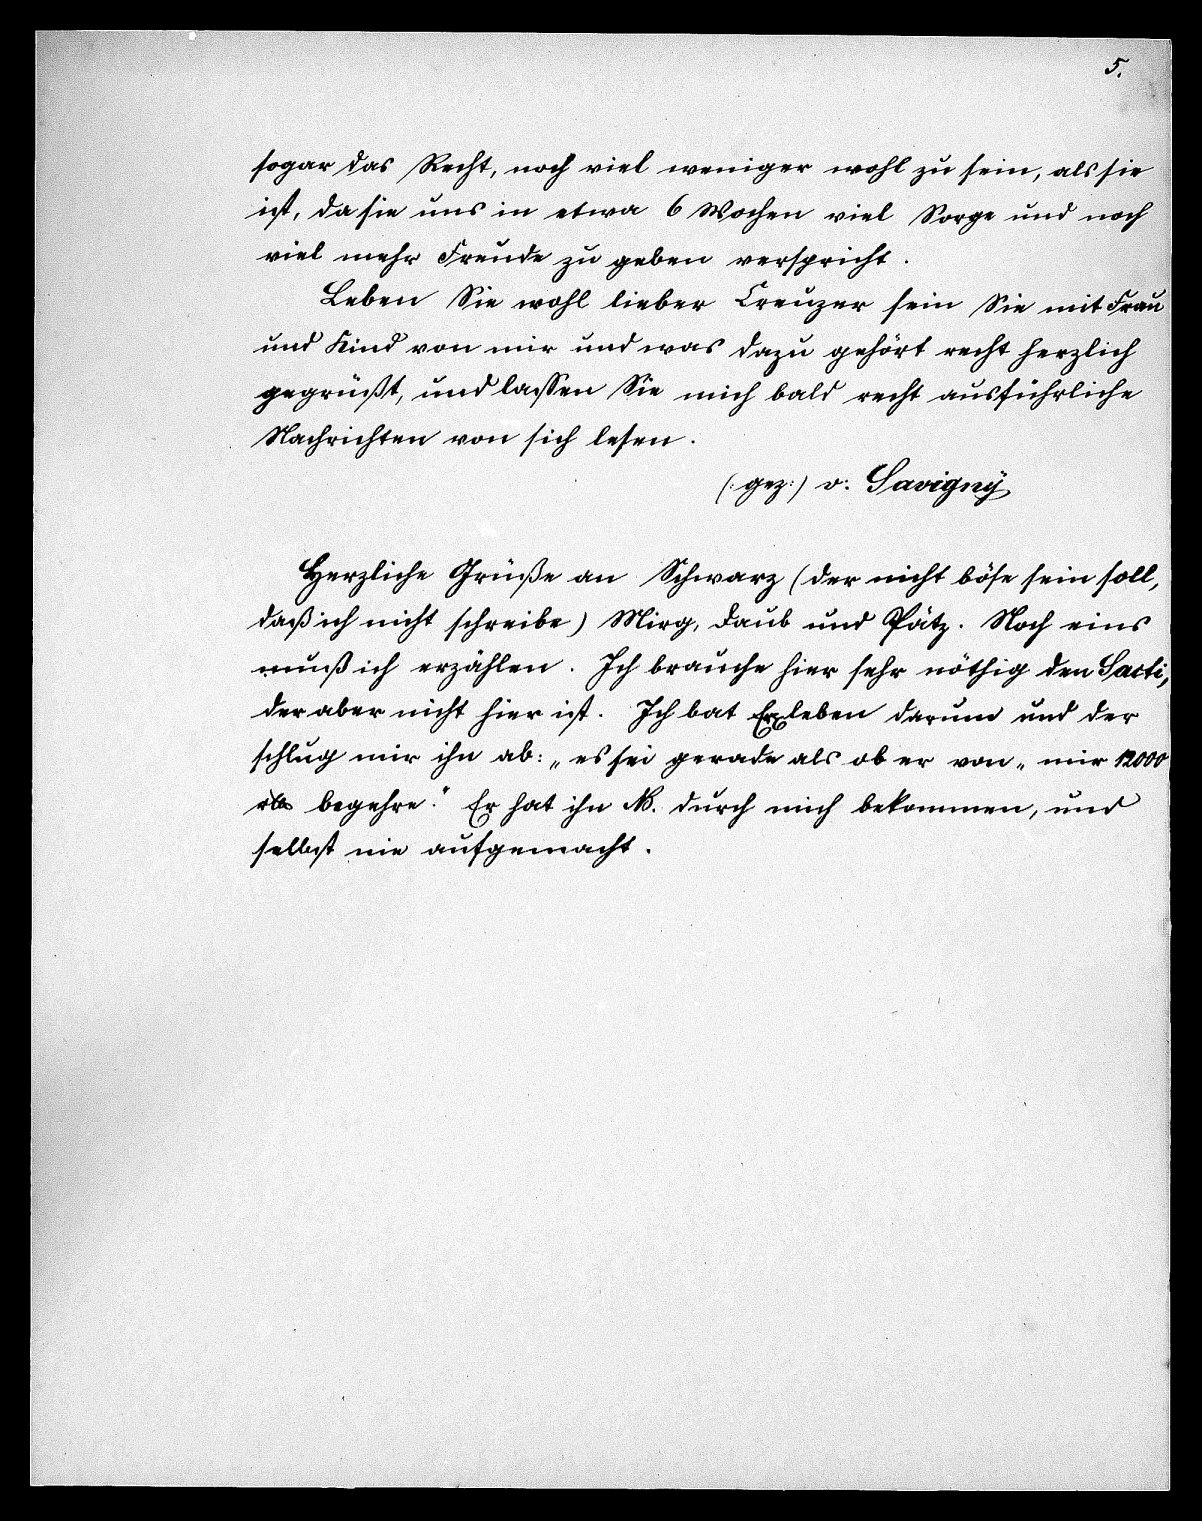 5.
sogar das Recht, noch viel weniger wohl zu sein, als sie
ist, da sie uns in etwa 6 Wochen viel Sorge und noch
viel mehr Freude zu geben verspricht.
Leben Sie wohl lieber Creuzer sein Sie mit Frau
und Kind von mir und was dazu gehört recht herzlich
gegrüßt, und lassen Sie mich bald recht ausführliche
Nachrichten von sich lesen.
(: gez:) v: Savigny
Herzliche Grüße an Schwarz (der nicht böse sein soll,
daß ich nicht schreibe) Mirg, Daub und Pätz. Noch eins
muß ich erzählen. Ich brauche hier sehr nöthig den Sarti,
der aber nicht hier ist. Ich bat Erxleben darum und der
schlug mir ihn ab: „es sei gerade als ob er von „ mir 12000
begehre." Er hat ihn NB. durch mich bekommen, und
selbst nie aufgemacht.